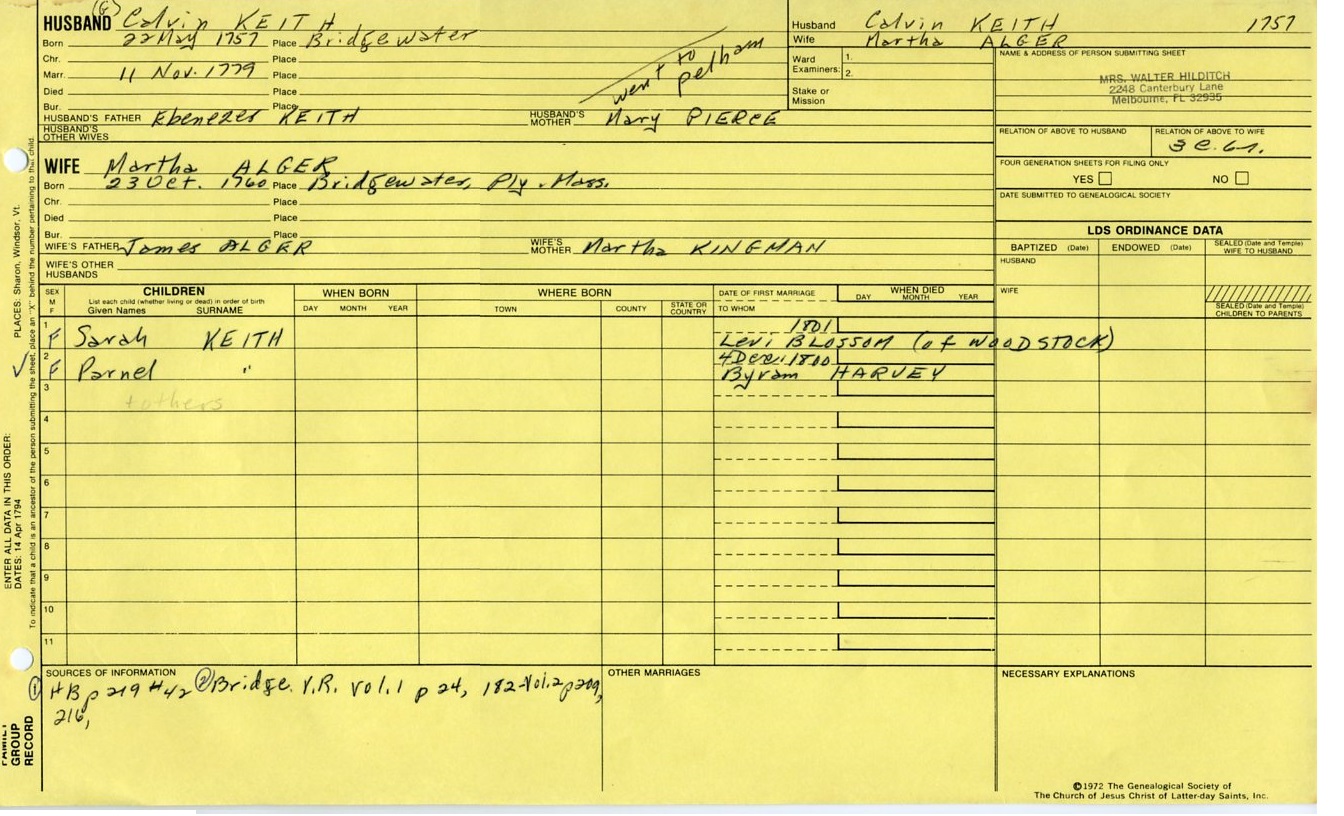 HUSBAND (G) Calvin KEITH
Born 22 May 1757 Place Bridgewater
Chr. Place
Marr. 11 Nov. 1779 Place
Died Place
Bur. Place
went to pelham
HUSBAND'S FATHER Ebenezer KEITH HUSBAND'S MOTHER Mary PIERCE
HUSBAND'S OTHER WIVES
Husband Calvin KEITH 1757
Wife Martha ALGER
Ward Examiners: 1.
2.
Stake or Mission
NAME & ADDRESS OF PERSON SUBMITTING SHEET
MRS. WALTER HILDITCH
2248 Canterbury Lane
Melbourne, FL 32935
RELATION OF ABOVE TO HUSBAND RELATION OF ABOVE TO WIFE
3 C. 6 r.
FOUR GENERATION SHEETS FOR FILING ONLY
YES NO
DATE SUBMITTED TO GENEALOGICAL SOCIETY
WIFE Martha ALGER
Born 23 Oct. 1760 Place Bridgewater, Ply. Mass.
Chr. Place
Died Place
Bur. Place
WIFE'S FATHER James ALGER WIFE'S MOTHER Martha KINGMAN
WIFE'S OTHER HUSBANDS
LDS ORDINANCE DATA
BAPTIZED (Date) ENDOWED (Date) SEALED (Date and Temple) WIFE TO HUSBAND
HUSBAND
WIFE
SEALED (Date and Temple) CHILDREN TO PARENTS
SEX M F CHILDREN WHEN BORN WHERE BORN DATE OF FIRST MARRIAGE WHEN DIED
List each child (whether living or dead) in order of birth
Given Names SURNAME DAY MONTH YEAR TOWN COUNTY STATE OR COUNTRY TO WHOM DAY MONTH YEAR
1 F Sarah KEITH 1801
Levi BLOSSOM (of WOODSTOCK)
2 F Parnel " 4 Dec. 1800
Byram HARVEY
3 + others
4
5
6
7
8
9
10
11
SOURCES OF INFORMATION
① HB p 219 #42 ② Bridge. V.R. vol.1 p 24, 182-Vol.2 p 209,
216,
OTHER MARRIAGES
NECESSARY EXPLANATIONS
©1972 The Genealogical Society of
The Church of Jesus Christ of Latter-day Saints, Inc.
FAMILY GROUP RECORD
ENTER ALL DATA IN THIS ORDER:
DATES: 14 Apr 1794
PLACES: Sharon, Windsor, Vt.
To indicate that a child is an ancestor of the person submitting the sheet, place an "X" behind the number pertaining to that child.